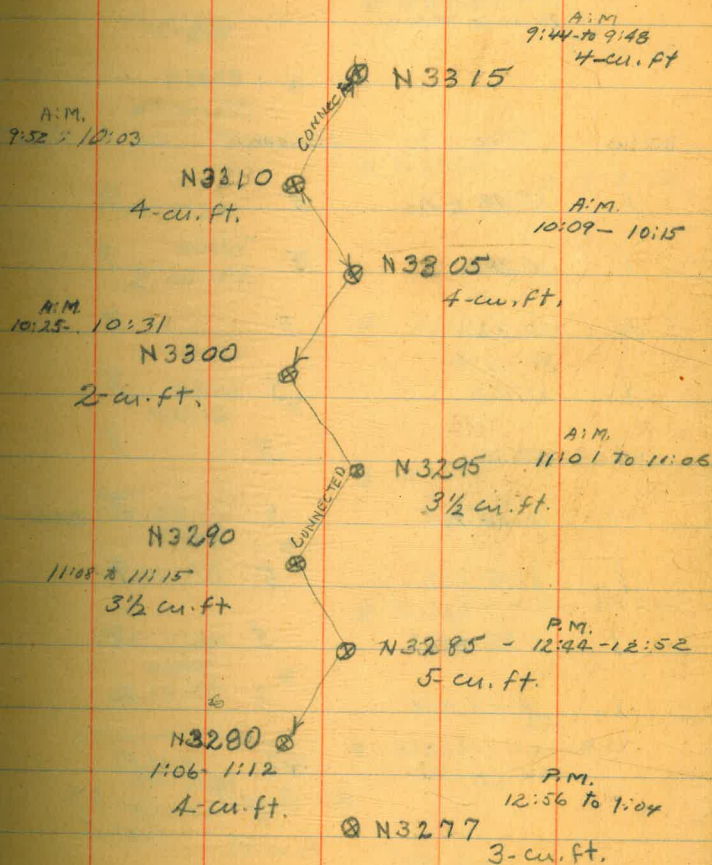 A.M
9:44-to 9:48
4-cu. ft
N3315
CONNECTED
A.M.
9:52 : 10:03
N3310
4-cu. ft.
A.M.
10:09 - 10:15
N3305
4-cu. ft.
A.M.
10:25- 10:31
N3300
2-cu. ft.
A.M.
11:01 To 11:06
N3295
3½ cu. ft.
CONNECTED
N3290
11:08 to 11:15
3½ cu. ft
P.M.
N3285 - 12:44-12:52
5-cu. ft.
N3280
1:06- 1:12
4-cu. ft.
P.M.
12:56 to 1:04
N3277
3-cu. ft.